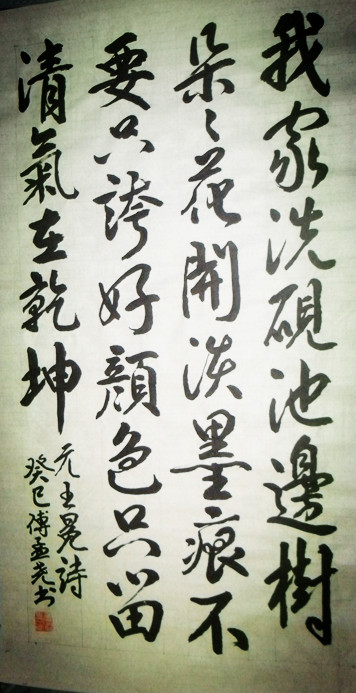 我家洗硯池邊樹
朵々花開淡墨痕不
要只誇好顏色只留
清氣在乾坤
元王冕詩
癸巳傅孟书